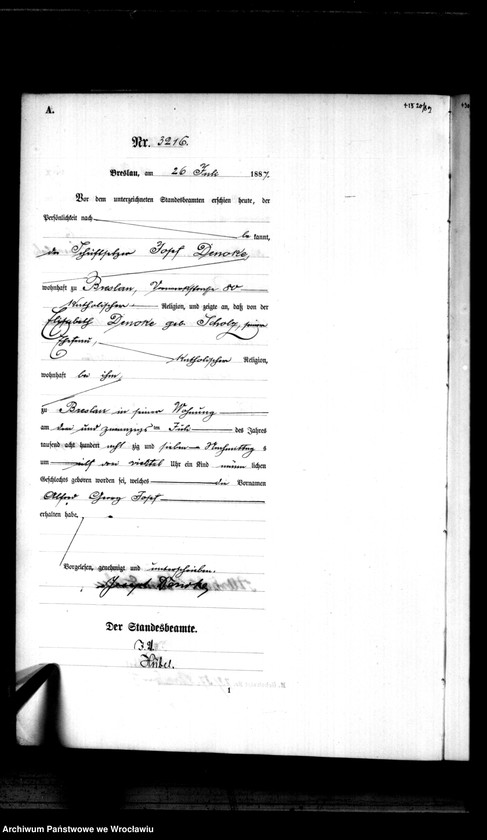 A.
Nr. 3216.
Breslau, am 26 Juli 1887.
Vor dem unterzeichneten Standesbeamten erschien heute, der
Persönlichkeit nach
be kannt,
der Schriftsetzer Josef Denoke,
wohnhaft zu Breslau, 80
katholischer Religion, und zeigte an, daß von der
Elisabeth Denoke geb. Scholz, seiner
Ehefrau,
katholischer Religion,
wohnhaft bei ihm,
zu Breslau in seiner Wohnung
am drei und zwanzigs ten Juli des Jahres
tausend acht hundert acht zig und sieben Nachmittag s
um elf drei viertel Uhr ein Kind männ lichen
Geschlechts geboren worden sei, welches die Vornamen
Alfred Georg Josef
erhalten habe.
Vorgelesen, genehmigt und unterschrieben.
Joseph Denoke
Der Standesbeamte.
J. V.
Hübel.
1
Archiwum Państwowe we Wrocławiu